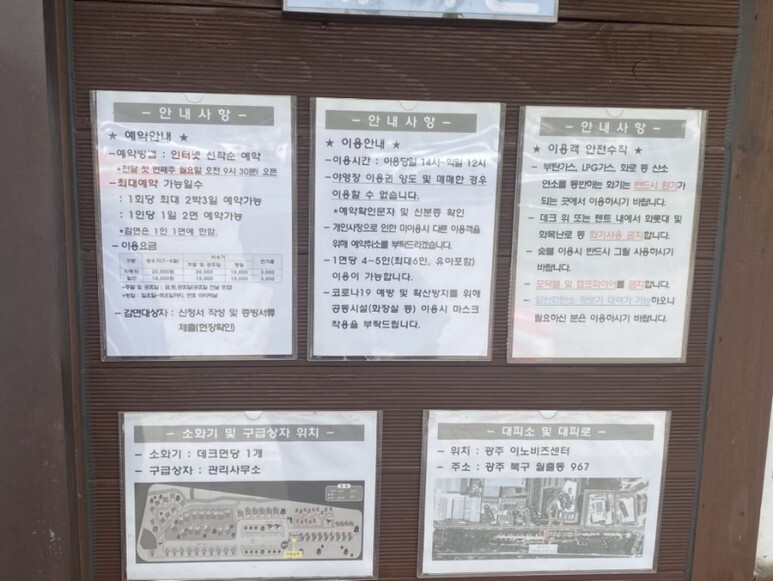 - 안내사항 -
★ 예약안내 ★
-예약방법 : 인터넷 선착순 예약
*전달 첫 번째주 월요일 오전 9시 30분 오픈
-최대예약 가능일수
: 1회당 최대 2박3일 예약가능
: 1인당 1일 2면 예약가능
*감면은 1인 1면에 한함.
-이용요금
구분
비수기
주말 및 공휴일
평일
전기료
20,000원
20,000
15,000
3,000
15,000원
15,000
10,000
3,000
-감면대상자 : 신청서 작성 및 증빙서류
제출(현장확인)
- 안내사항 -
★ 이용안내 ★
-이용시간 : 이용당일 14시-익일 12시
-야영장 이용권 양도 및 매매한 경우
이용할 수 없습니다.
*예약확인문자 및 신분증 확인
- 개인사정으로 인한 미이용시 다른 이용객을
위해 예약취소를 부탁드리겠습니다.
-1면당 4~5인(최대6인, 유아포함)
이용이 가능합니다.
-코로나19 예방 및 확산방지를 위해
공동시설(화장실 등) 이용시 마스크
착용을 부탁드립니다.
- 안내사항 -
★ 이용객 안전수칙 ★
- 부탄가스, LPG가스, 화로 등 산소
연소를 동반하는 화기는 반드시 환기가
되는 곳에서 이용하시기 바랍니다.
- 데크 위 또는 텐트 내에서 화롯대 및
화목난로 등 화기사용 금지합니다.
- 숯불 이용시 반드시 그릴 사용하시기
바랍니다.
- 모닥불 및 캠프파이어를 금지합니다.
- 일산화탄소 경보기 대여가 가능하오니
필요하신 분은 이용하시기 바랍니다.
- 소화기 및 구급상자 위치 -
- 소화기 : 데크면당 1개
- 구급상자 : 관리사무소
- 대피소 및 대피로 -
- 위치 : 광주 이노비즈센터
- 주소 : 광주 북구 월출동 967